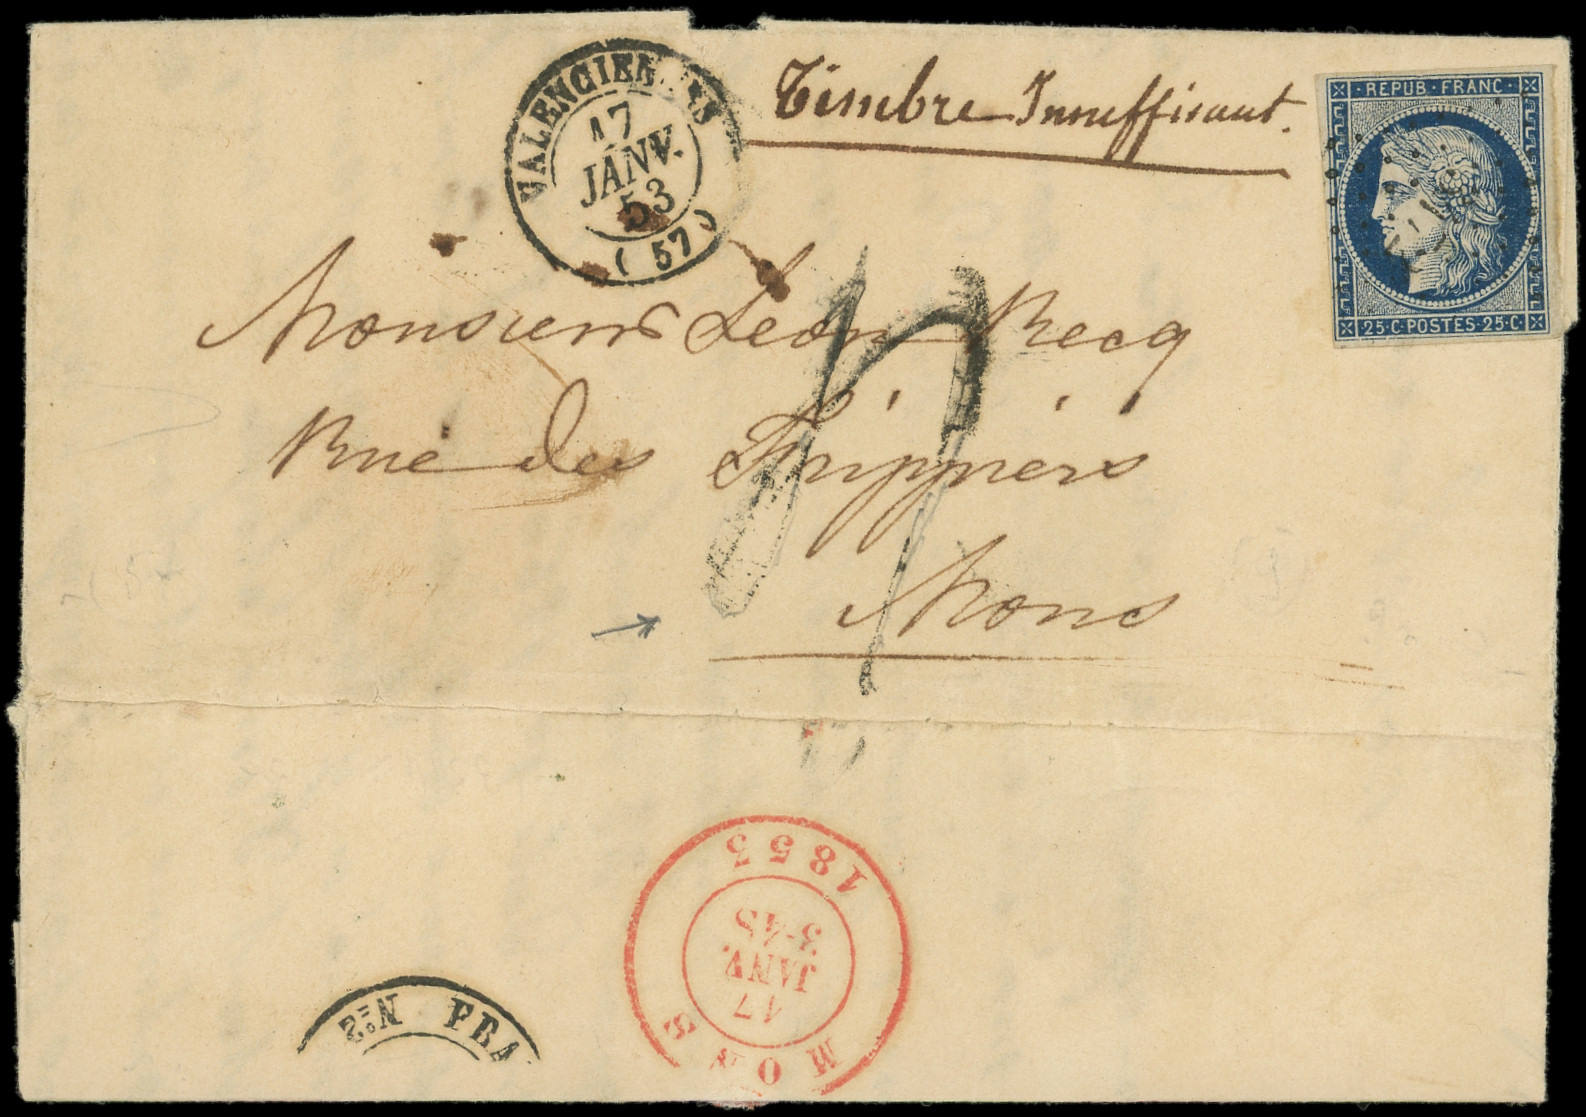 VALENCIENNES
17
JANV.
53
(57)
Timbre Insuffisant.
REPUB·FRANC·
25·C·POSTES·25·C
Monsieur Léon Recq
Rue des Frippiers
Mons
1853
3-4S
JANV.
17
MONS
FRA